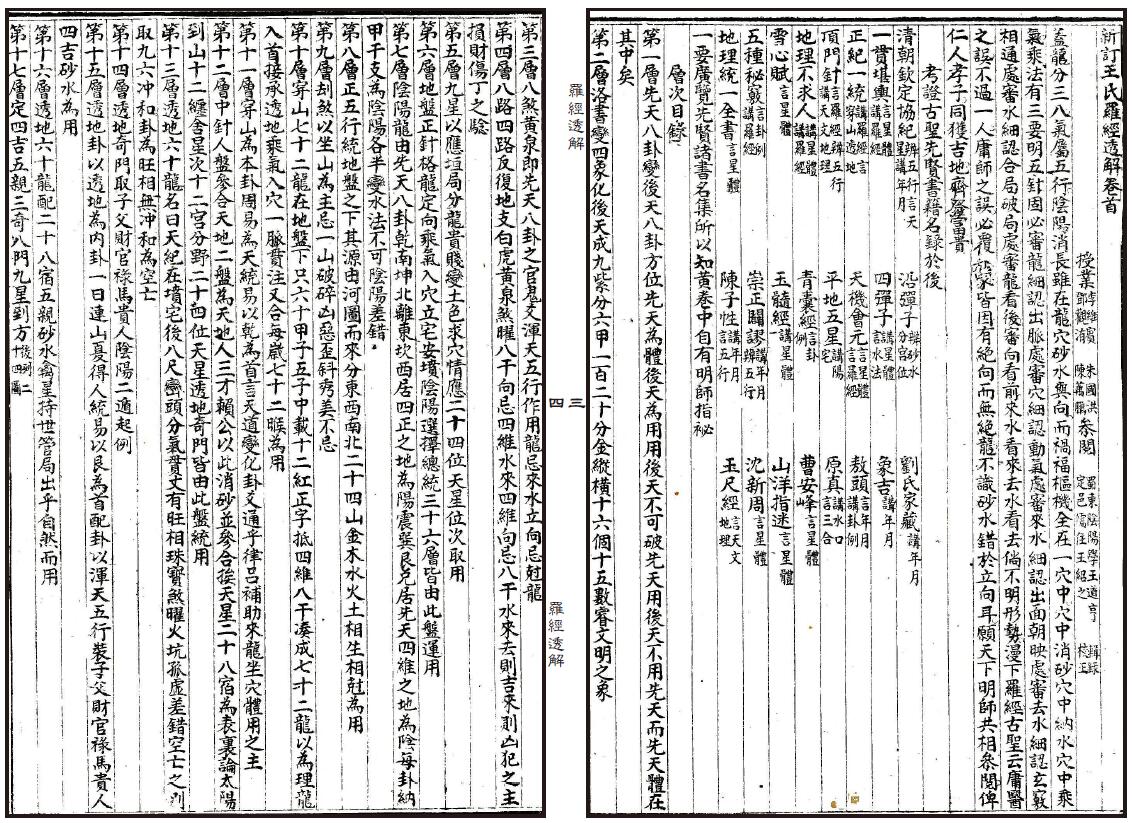 新訂王氏羅經透解卷首
授業
朱國洪
陳萬
參閱
蓋龍分三八氣屬五行陰陽消長雖在龍穴砂水與向而禍福樞機全在一穴中穴中消砂穴中納水穴中乘
氣乘法有三要明五針固必審龍細認出脈處審穴細認動氣處審來水細認出面朝映處審去水細認玄竅
相通處審水細認合局破局處審龍看後審向看前來水看來去水看去倘不明形勢漫下羅經古聖云庸醫
之誤不過一人庸師之誤必覆
家皆因有絕向而無絕龍不識砂水錯於立向耳願天下明師共相參閱俾
仁人孝子同獲吉地齊登富貴
考證古聖先賢書籍名錄於後
清朝欽定協紀辨五行言天星講年月 沿彈子辨砂水分宮位 劉氏家藏講年月
一貫堪輿言星體講羅經 四彈子講星體言水法 象吉講年月
正紀一統講羅經言穿山透地 天機會元言星體言羅經 敖頭言年月講卦例
頂門針言羅經辨五行講天文地理 平地五星講陽宅 原真講水口言三合
地理不求人講星體講羅經 青囊經言卦例 曹安峰言星體
雪心賦言星體 玉髓經講星體 山洋指迷言星體
五種秘竅言卦例講羅經 崇正闢謬講年月辨五行 沈新周言星體
地理統一全書言星體 陳子性講年月言五行 玉尺經言天文地理
一要廣覽先賢諸書名集所以知黃卷中自有明師指祕
層次目錄
第一層先天八卦變後天八卦方位先天為體後天為用用後天不可破先天用後天不用先天而先天體在
其中矣
第二層洛書變四象化後天成九紫分六甲一百二十分金縱橫十六個十五數睿文明之象
羅經透解
三
四
羅經透解
第三層八煞黃泉即先天八卦之官鬼爻渾天五行作用龍忌來水立向忌尅龍
第四層八路四路反復地支白虎黃泉煞曜八干向忌四維水來四維向忌八干水來去則吉來則凶犯之主
損財傷丁之驗
第五層九星以應垣局分龍貴賤變土色求穴情應二十四位天星位次取用
第六層地盤正針格龍定向乘氣入穴立宅安墳陰陽選擇總統三十六層皆由此盤運用
第七層陰陽龍由先天八卦乾南坤北離東坎西居四正之地為陽震巽艮兌居先天四維之地為陰每卦納
甲干支為陰陽各半變水法不可陰陽差錯
第八層正五行統地盤之下其源由河圖而來分東西南北二十四山金木水火土相生相尅為用
第九層刦煞以坐山為主忌一山破碎凶惡歪斜秀美不忌
第十層穿山七十二龍在地盤下只六十甲子五子中載十二紅正字抵四維八干湊成七十二龍以為理龍
入首接承透地乘氣入穴一脈貫注又合每歲七十二候為用
第十一層穿山為本卦周易為天統易以乾為首言天道變化卦爻通乎律呂補助來龍坐穴體用之主
第十二層中針人盤參合天地二盤為天地人三才賴公以此消砂並參合挨天星二十八宿為表裏論太陽
到山十二纏舍星次十二宮分野二十四位天星透地奇門皆由此盤統用
第十三層透地六十龍名曰天紀在墳宅後八尺巒頭分氣貫丈有旺相珠寶煞曜火坑孤虛差錯空亡之別
取九六冲和卦為旺相無冲和為空亡
第十四層透地奇門取子父財官祿馬貴人陰陽二遁起例
第十五層透地卦以透地為內卦一日連山夏得人統易以艮為首配卦以渾天五行裝子父財官祿馬貴人
四吉砂水為用
第十六層透地六十龍配二十八宿五親砂水禽星持世管局出乎自然而用
第十七層定四吉五親三奇八門九星到方